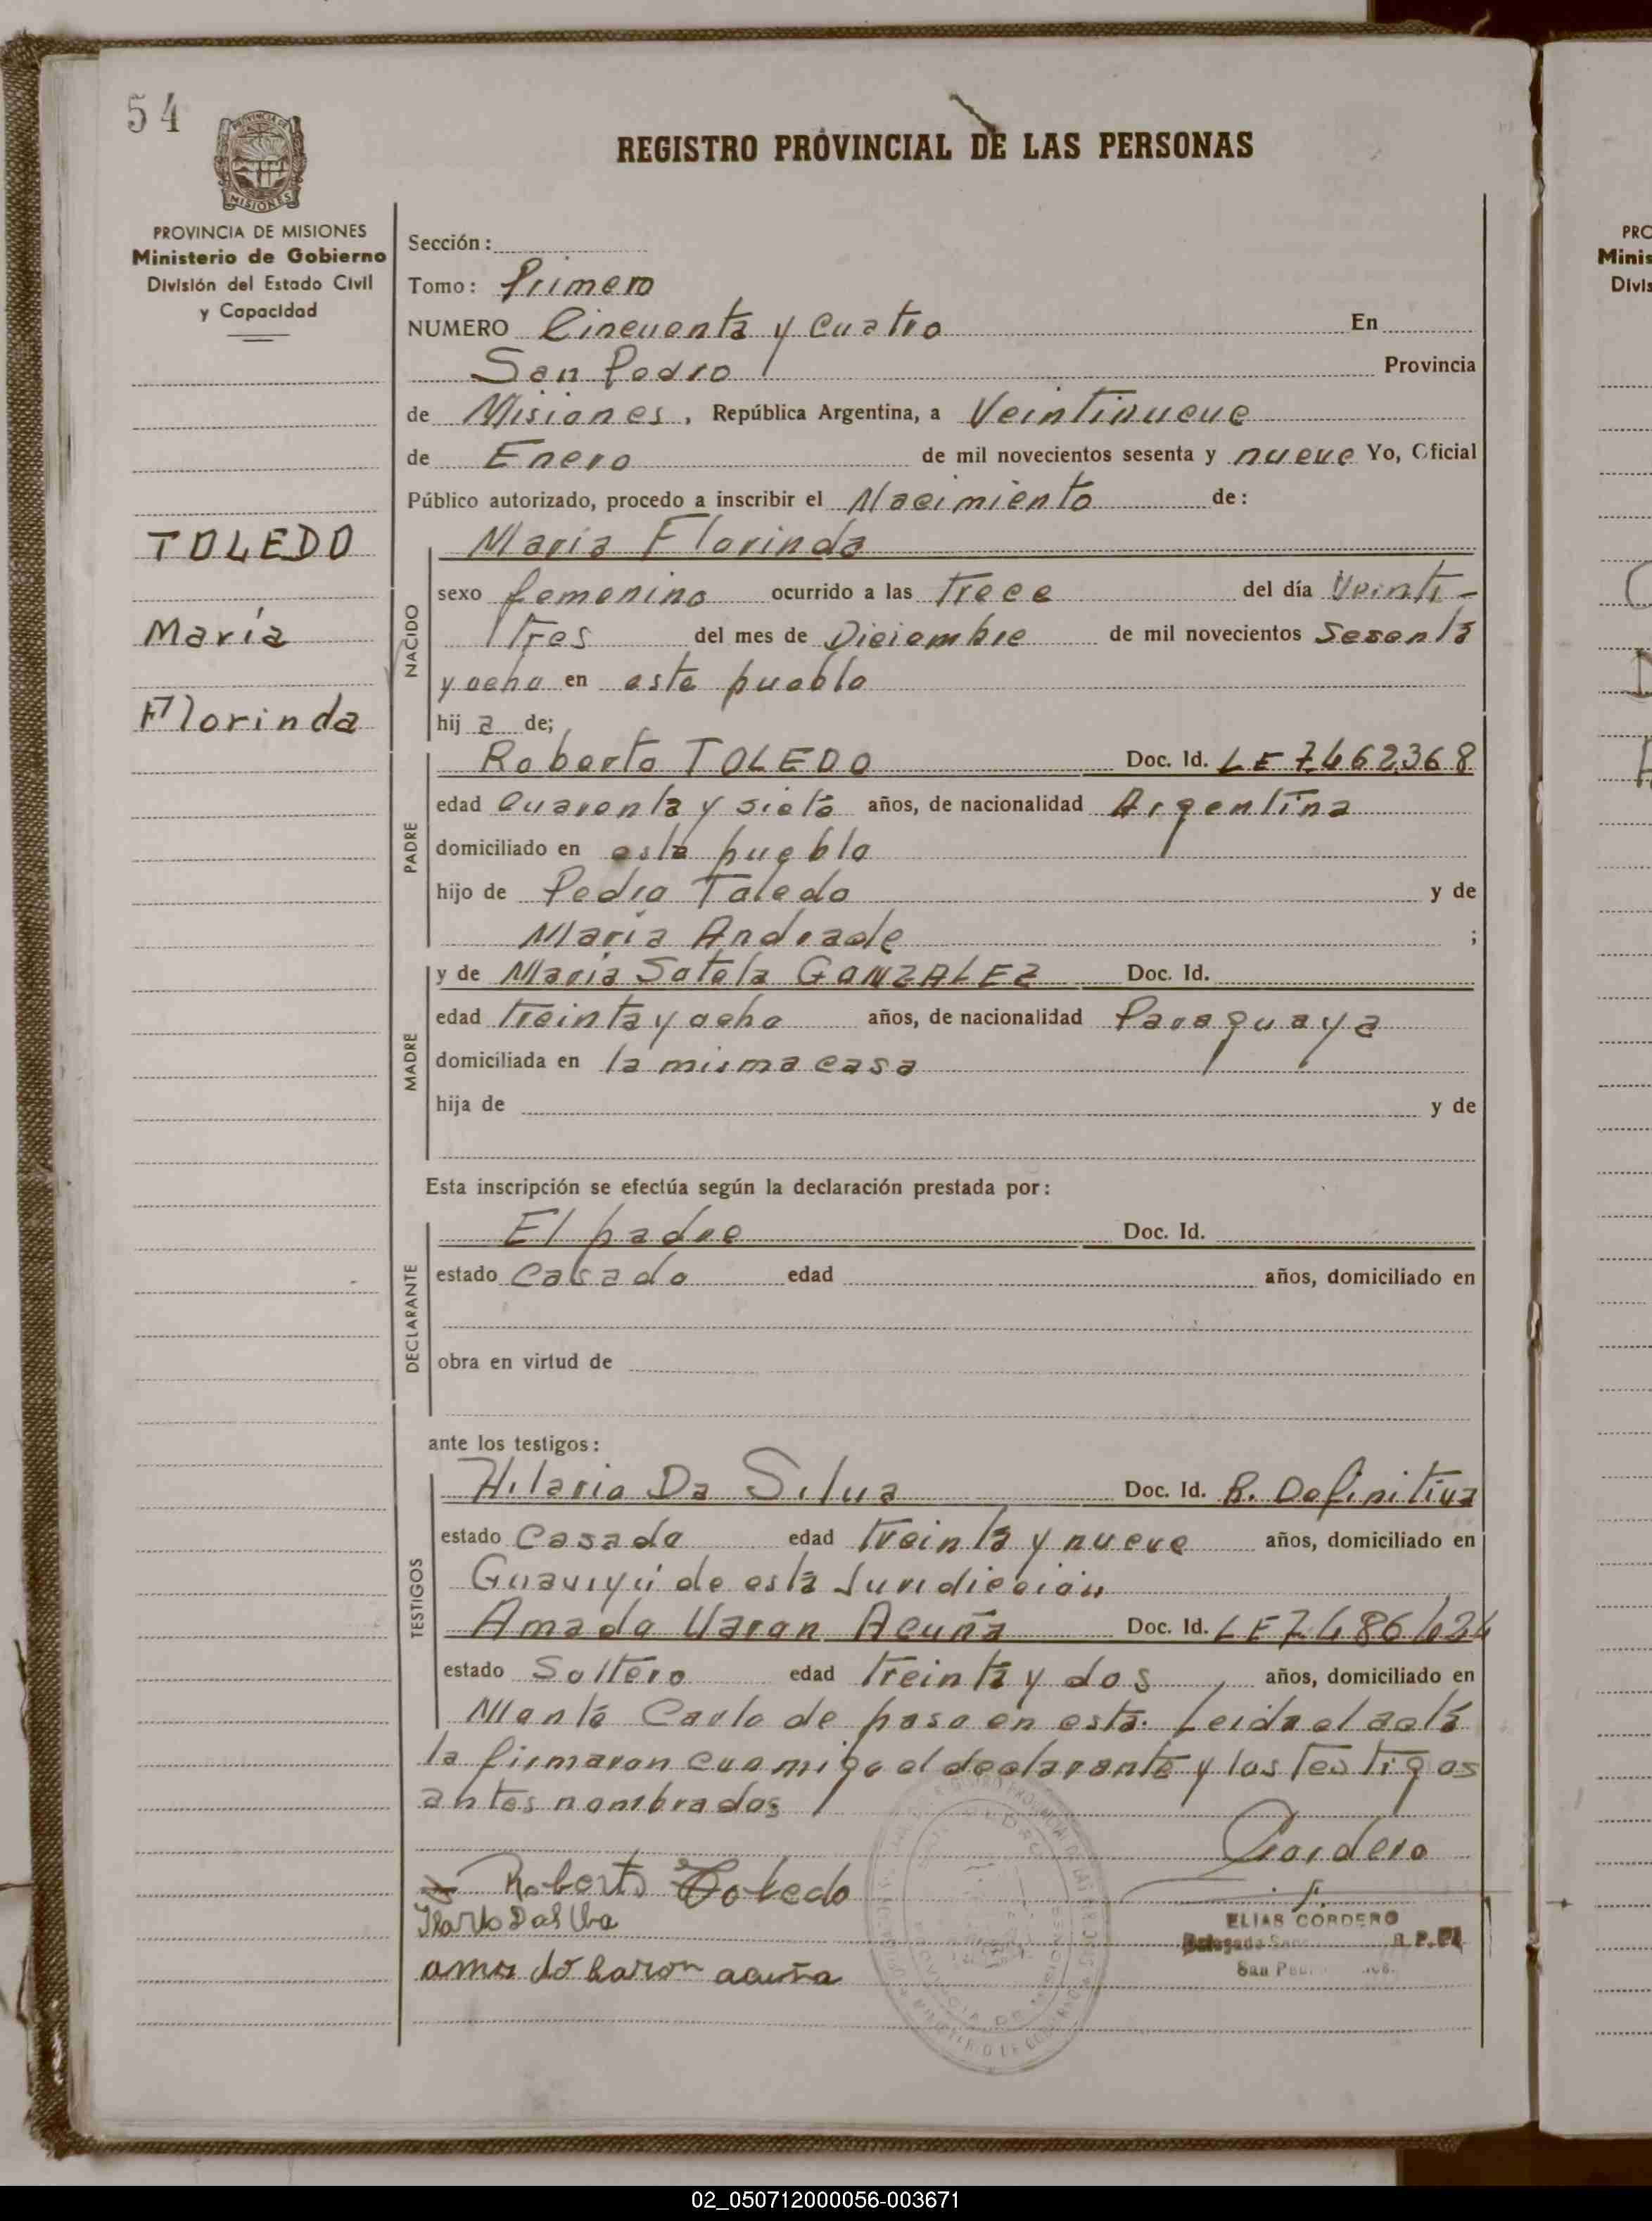 54
PROVINCIA DE MISIONES
Ministerio de Gobierno
División del Estado Civil
y Capacidad
REGISTRO PROVINCIAL DE LAS PERSONAS
Sección:
Tomo: Primero
NUMERO Cincuenta y Cuatro En
San Pedro Provincia
de Misiones, República Argentina, a Veintinueve
de Enero de mil novecientos sesenta y nueve Yo, Oficial
Público autorizado, procedo a inscribir el Nacimiento de:
TOLEDO
María
Florinda
NACIDO
Maria Florinda
sexo femenino ocurrido a las trece del día Veinti-
tres del mes de Diciembre de mil novecientos Sesenta
y ocho en este pueblo
hij a de;
PADRE
Roberto TOLEDO Doc. Id. LE 7462368
edad Cuarenta y siete años, de nacionalidad Argentina
domiciliado en este pueblo
hijo de Pedro Toledo y de
María Andrade ;
MADRE
y de Maria Sotela GONZALEZ Doc. Id.
edad treinta y ocho años, de nacionalidad Paraguaya
domiciliada en la misma casa
hija de y de
Esta inscripción se efectúa según la declaración prestada por:
DECLARANTE
El padre Doc. Id.
estado Casado edad años, domiciliado en
obra en virtud de
ante los testigos:
TESTIGOS
Hilario Da Silva Doc. Id. R. Definitiva
estado Casado edad treinta y nueve años, domiciliado en
Guaviyú de esta Juridicción
Amado Varon Acuña Doc. Id. LE 7486424
estado Soltero edad treinta y dos años, domiciliado en
Monte Carlo de paso en esta. Leida el acta
la firmaron conmigo el declarante y los testigos
antes nombrados
Cordero
Roberto Toledo
amado baron acuña
ELIAS CORDERO
San Pedro
02_050712000056-003671